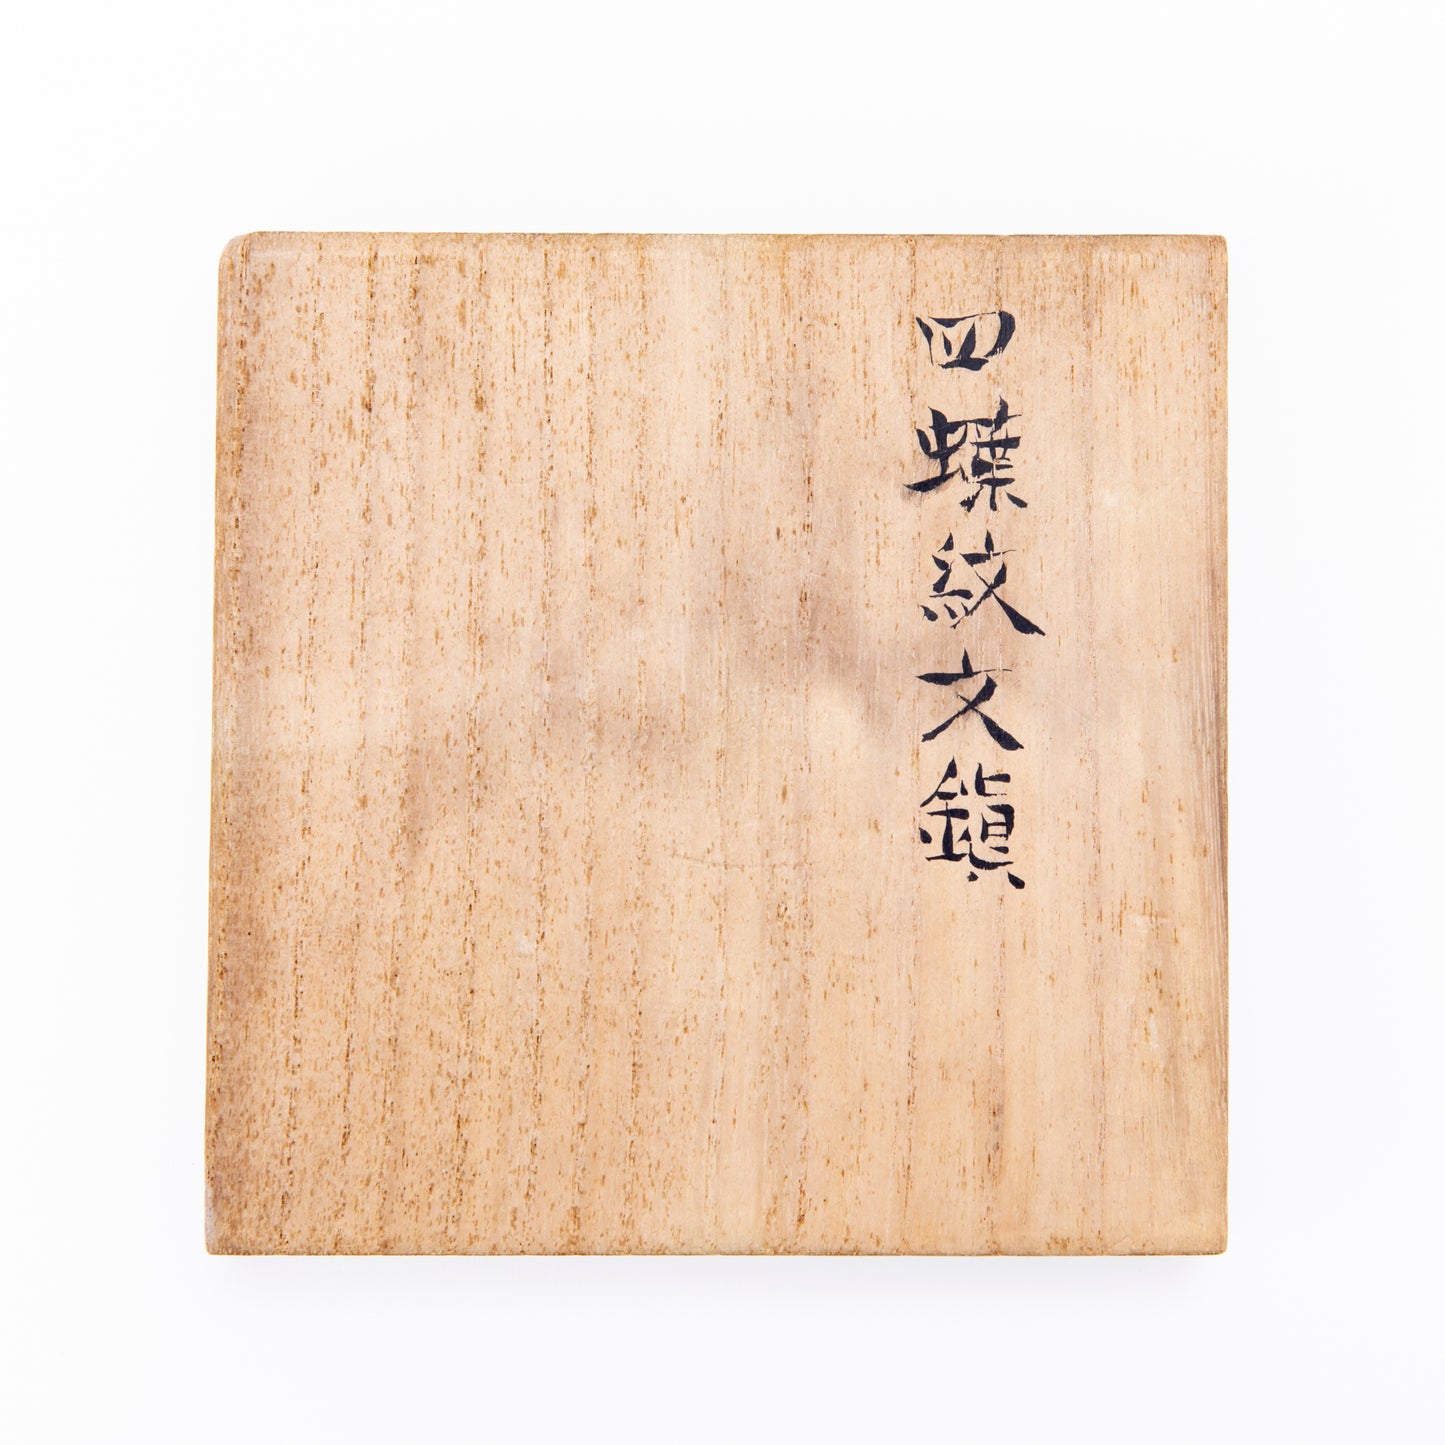 四蝶紋文鎮